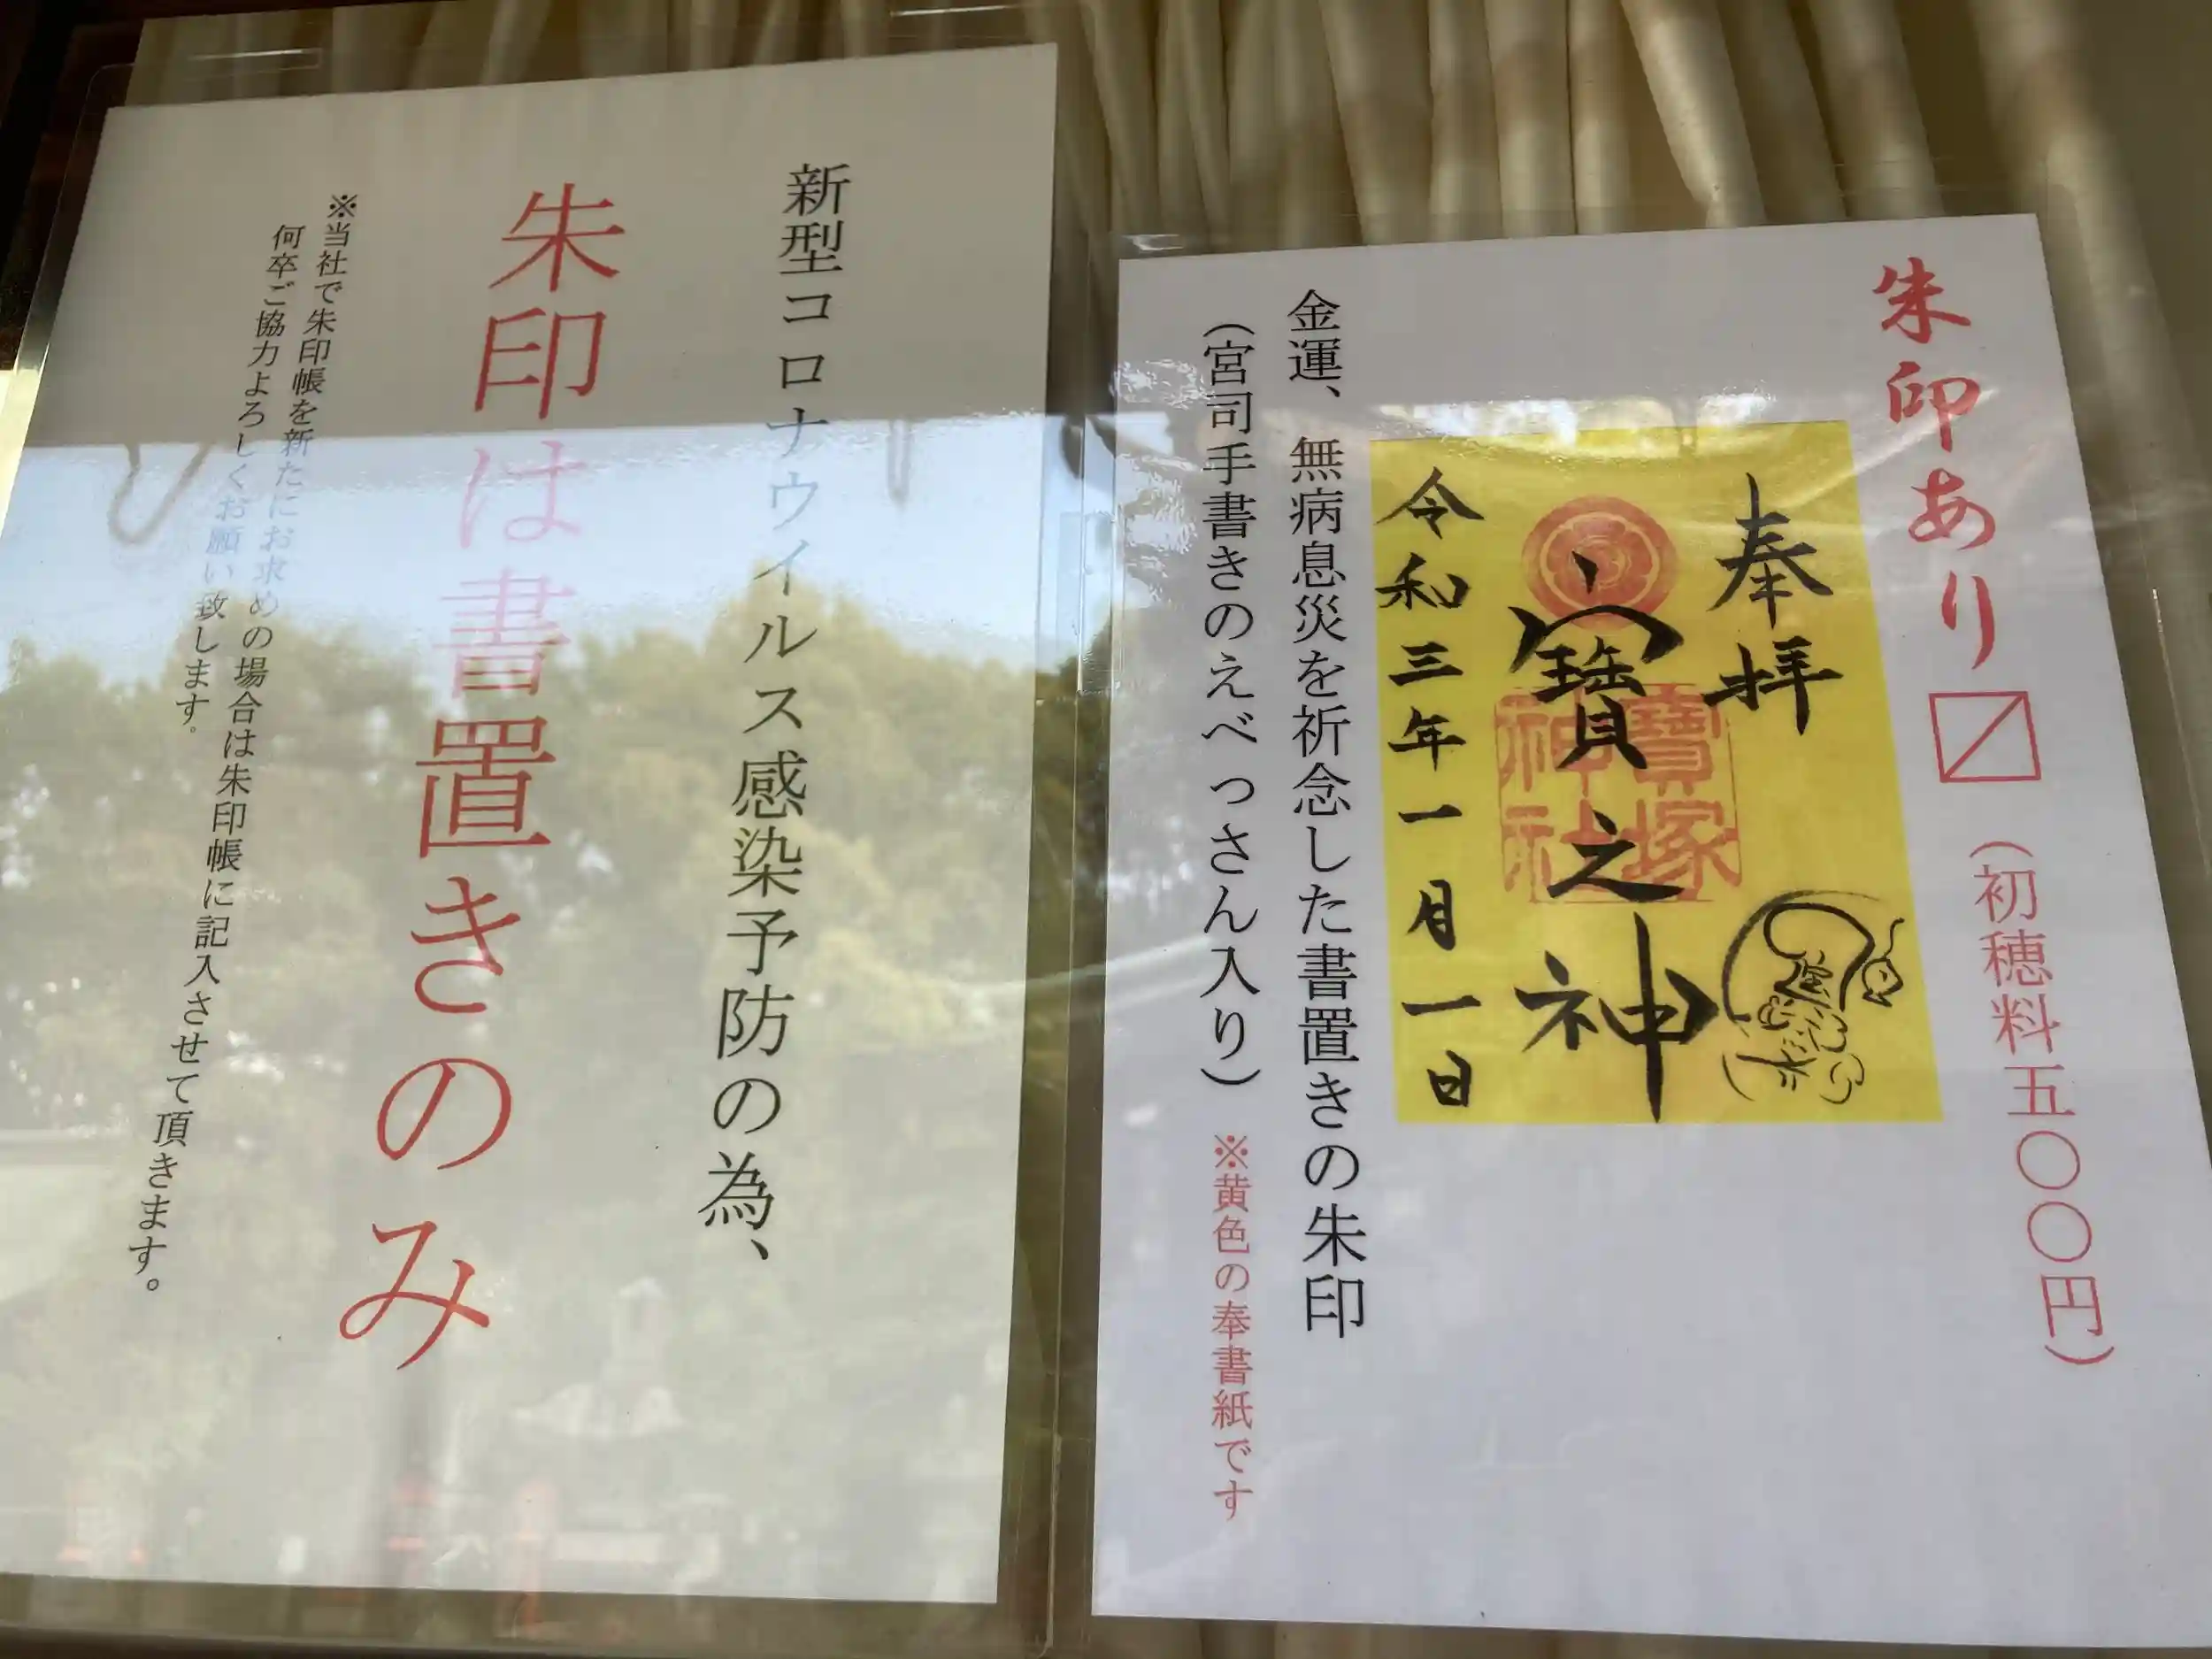 朱印あり〼（初穂料五〇〇円）
奉拝
寶之神
寶塚
神社
令和三年一月一日
金運、無病息災を祈念した書置きの朱印
（宮司手書きのえべっさん入り）※黄色の奉書紙です
新型コロナウイルス感染予防の為、
朱印は書置きのみ
※当社で朱印帳を新たにお求めの場合は朱印帳に記入させて頂きます。
何卒ご協力よろしくお願い致します。